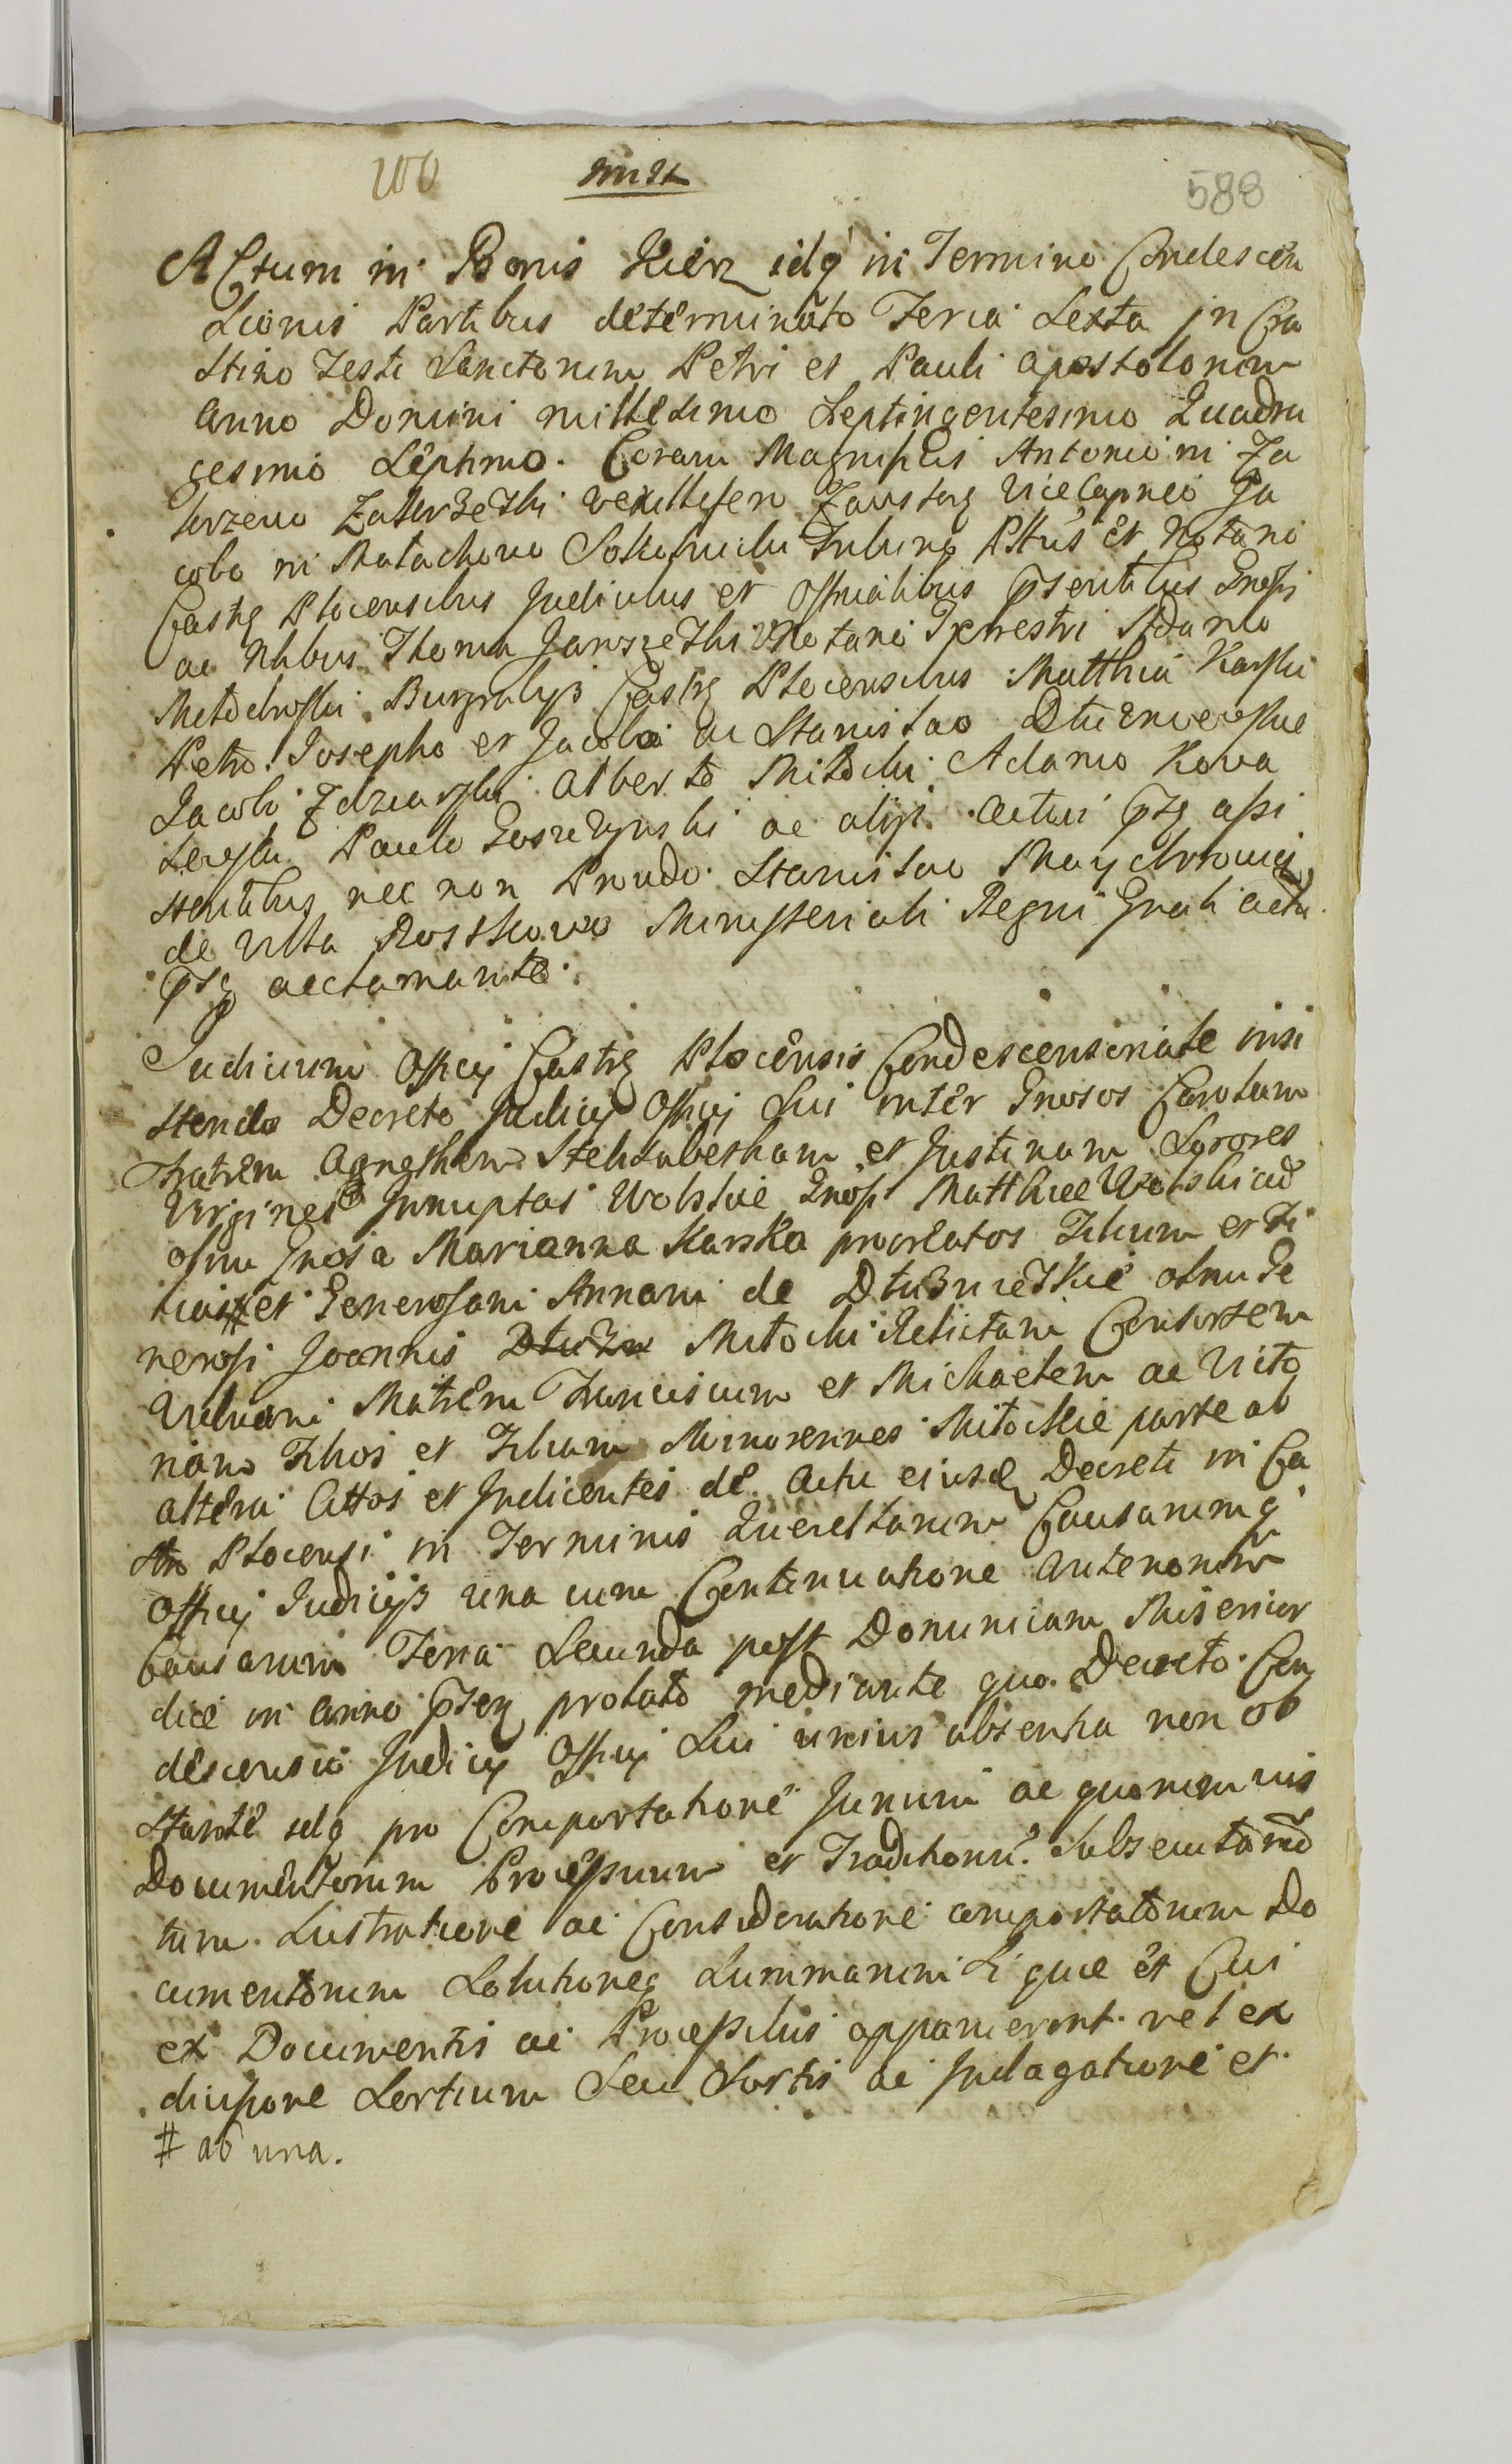 200
588
Actum in Bonis Kierz idq in Termino Condescen
sionis Partibus determinato Feria Sexta in Cra
stino Festi Sanctorum Petri et Pauli Apostolorum
Anno Domini millesimo Septingentesimo Quadra
gesimo Septimo. Coram Magnificis Antonio in Za
krzewo Vexillifero Vice Capneo Ja
cobo in Notario
Castr Plocensibus Judicibus et Officialibus pntibus Gnosis
ac Nlibus Thoma Jaroszewski Notario Terrestri Adamo
Burgrabys Castr Plocensibus Matthia Karski
Petro Josepho et Jacobo ac Stanislao Dluzniewskie
Jacobo Zdziarski Alberto Mitocki Adamo Kowa
lewski Paulo Goszczynski ac alijs Actui pnt assi
stentibus nec non Provido Stanislao
de Villa Rostkowo Ministeriali Regni Gnali actu
pnt acclamante.
Judicium Officij Castr Plocensis Condescensoriale insi
stendo Decreto Judicij Officij Sui inter Gnosos Carolum
Fratrem Agnethem et Justinam Sorores
Virgines Innuptas Wolskie Gnosi Matthiae Wolski cum
olim Gnosa Marianna Karska procreatos Filium et Fi
lias # et Generosam Annam de Dluzniewskie olim Ge
nerosi Joannis Dluzn Mitocki Relictam Consortem
Viduam Matrem Franciscum et Michaelem ac Victo
riam Filios et Filiam Minorennes Mitockie parte ab
altera Attos et Judicentes de Actu ejusd Decreti in Ca
stro Plocensi in Terminis Querellarum Causarumq
Officij Judicijs una cum Continuatione Anteriorum
Causarum Feria Secunda post Dominicam Misericor
diae in Anno pnti prolato mediante quo Decreto Con
descensio Judicij Officij Sui unius absentia non ob
stante idq pro Comportatione Jurium ac quorumvis
Documentorum Processuum et Traditionum Subsecutarum
tum Lustratione ac Consideratione comportatorum Do
cumentorum Solutioneq Summarum Si quae et Cui
ex Documentis ac Processibus apparuerint vel ex
divisione Sortium Seu Sortis ac Indagatione et
# ab una.